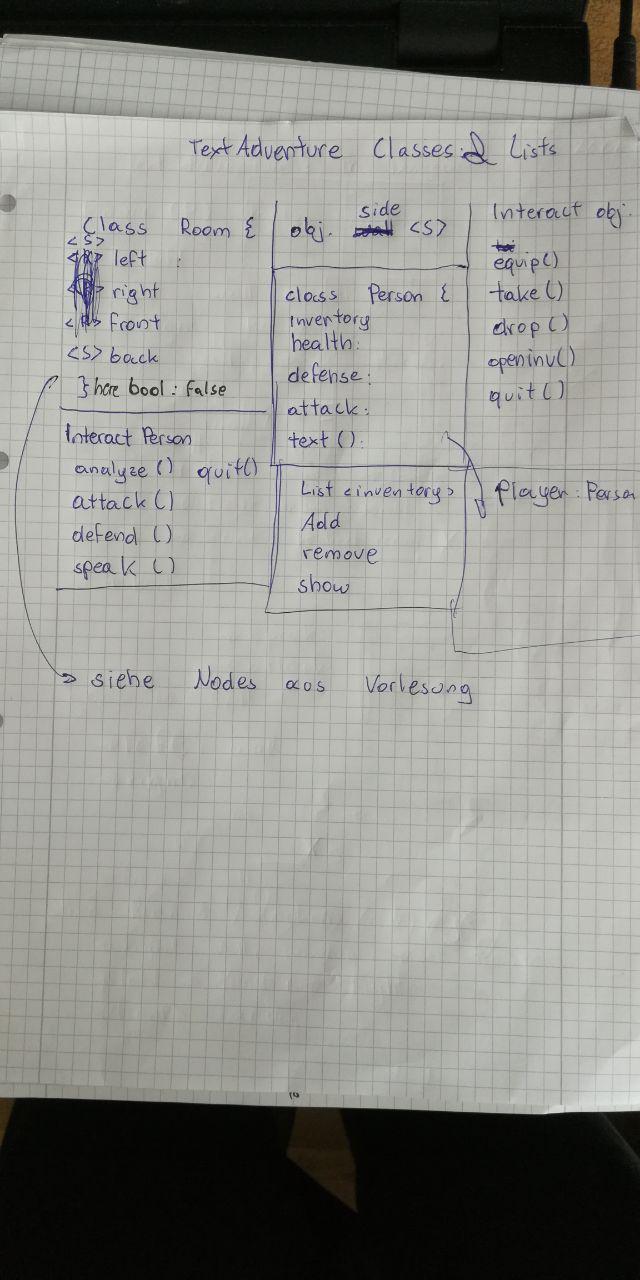 Text Adventure Classes & Lists
Class Room {
<S>
left :
right
front
<S> back
} here bool : false
Interact Person
analyze () quit()
attack ()
defend ()
speak ()
obj. side <S>
class Person {
inventory
health:
defense:
attack:
text ():
List <inventory>
Add
remove
show
Interact obj.
equip()
take()
drop()
openinv()
quit()
Player : Person
siehe Nodes aus Vorlesung